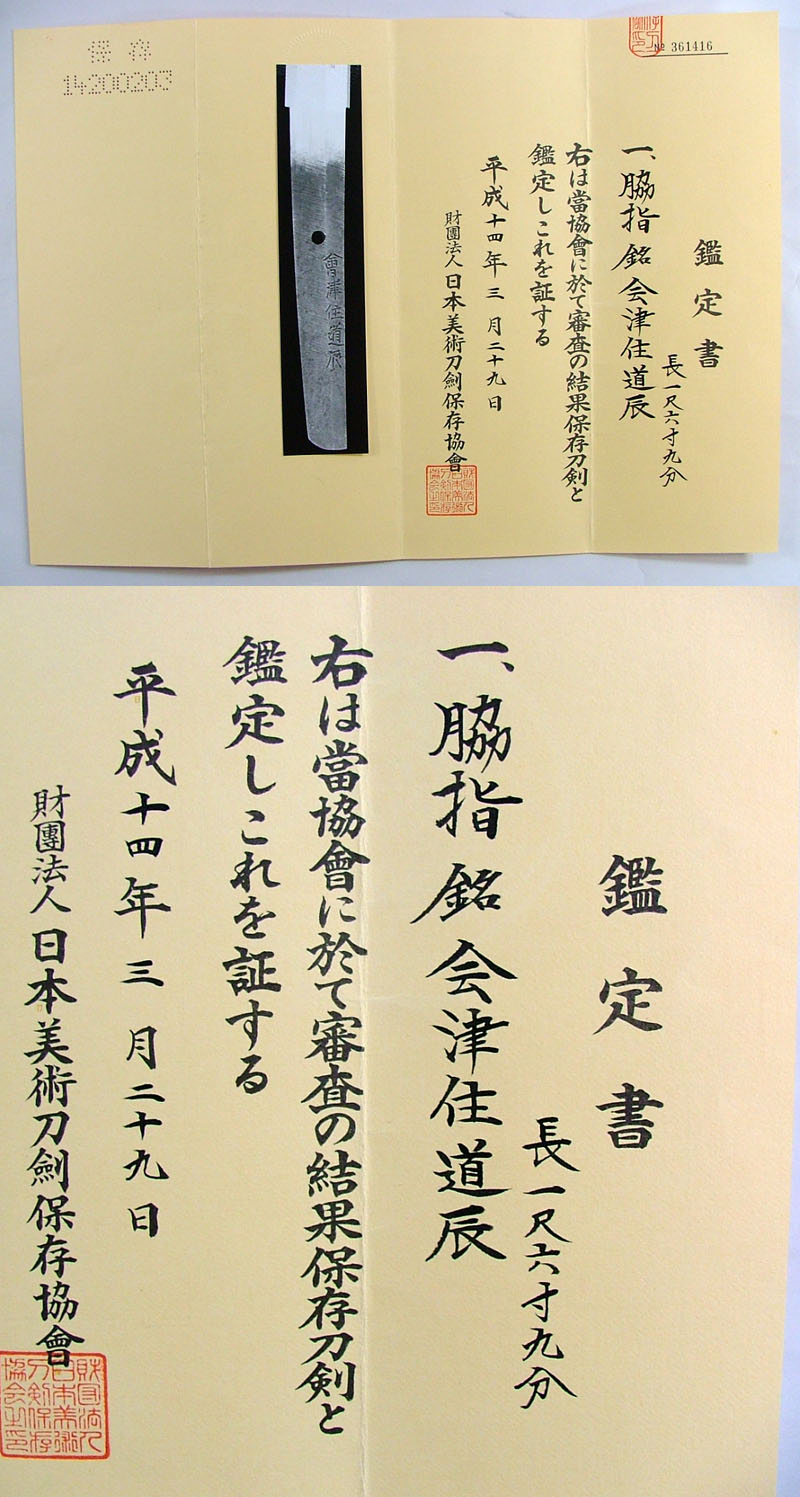 № 361416
鑑定書
長一尺六寸九分
一、脇指 銘 会津住道辰
右は當協會に於て審査の結果保存刀剣と
鑑定しこれを証する
平成十四年三月二十九日
財團法人日本美術刀劍保存協會
財団法人日本美術刀剣保存協会之印
會津住道辰
保存
14200203
鑑定書
長一尺六寸九分
一、脇指 銘 会津住道辰
右は當協會に於て審査の結果保存刀剣と
鑑定しこれを証する
平成十四年三月二十九日
財團法人日本美術刀劍保存協會
財団法人日本美術刀剣保存協会之印